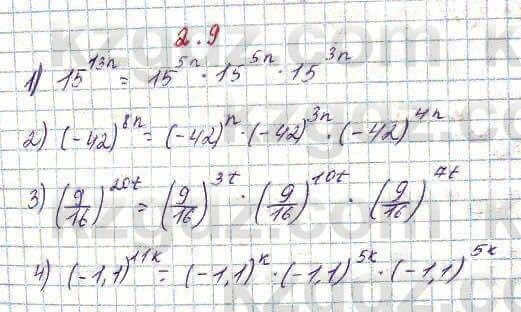 2.9
1) 15^{13n} = 15^{5n} · 15^{5n} · 15^{3n}
2) (-42)^{8n} = (-42)^{n} · (-42)^{3n} · (-42)^{4n}
3) (9/16)^{20t} = (9/16)^{3t} · (9/16)^{10t} · (9/16)^{7t}
4) (-1,1)^{11k} = (-1,1)^{k} · (-1,1)^{5k} · (-1,1)^{5k}